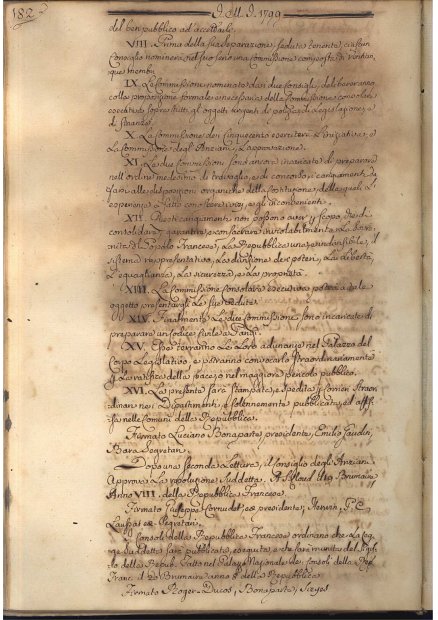 182
1799
del ben pubblico ad accettarle.
VIII. Prima della sua separazione, seduta tenente, ciascun
Consiglio nominerà nel suo seno una Commissione composta di venticin,
que membri.
IX. Le Commissioni nominate dai due Consigli, delibereranno
colla proposizione formale e necessaria della Commissione consolare
esecutiva sopra tutti gli oggetti urgenti di polizia, di Legislazione, e
di finanze.
X. La Commissione dei Cinquecento eserciterà l'iniziativa, e
La Commissione degl'Anziani, L'approvazione.
XI. Le due Commissioni sono ancora incaricate di preparare
nell'ordine medesimo di travaglio, e di concorso, i cangiamenti da
farsi alle disposizioni organiche della Costituzione, delle quali L'
esperienza à fatto conoscere i vizj, e gli inconvenienti.
XII. Questi cangiamenti non possono aver p scopo, che di
consolidare, garantire, e consecrare inviolabilmente La Sovra,
nità del Popolo Francese, La Repubblica una, e indivisibile, il
sistema rappresentativo, La divisione dei poteri, La libertà,
L'eguaglianza, La sicurezza, e La proprietà.
XIII. La Commissione consolare esecutiva poterà a tale
oggetto presentar gli Le sue vedute.
XIV. Finalmente Le due commissioni sono incaricate di
preparare un codice civile
XV. Esse terranno Le Loro adunanze nel Palazzo del
Corpo Legislativo, e potranno convocarlo straordinariamente
p La ratifica della pace, o nel maggiore pericolo pubblico.
XVI. La presente sarà stampata, e spedita p Corrieri straor
dinarj nei Dipartimenti, e solennemente pubblicata, ed affis,
sa nelle Comuni della Repubblica.
Firmato Luciano Bonaparte presidente, Emilio Gaudin,
Bara segretarj.
Dopo una seconda Lettura, il Consiglio degli Anziani
Approva La risoluzione suddetta. A S. Cloud il 19 Brumaire
Anno VIII. della Repubblica Francese.
Firmato Giuseppe Cornudet ex presidente, Herwin, P. C.
Laussat ex-segretarj.
I Consoli della Repubblica Francese ordinano che La Leg,
ge suddetta sarà pubblicata, eseguita, e che sarà munita del Sigil,
lo della Repub. Fatto nel Palazzo Nazionale dei Consoli della Rep.
Franc. il 20 Brumaire anno 8. della Repubblica.
Firmato Roger-Ducos, Bonaparte, Sieyes